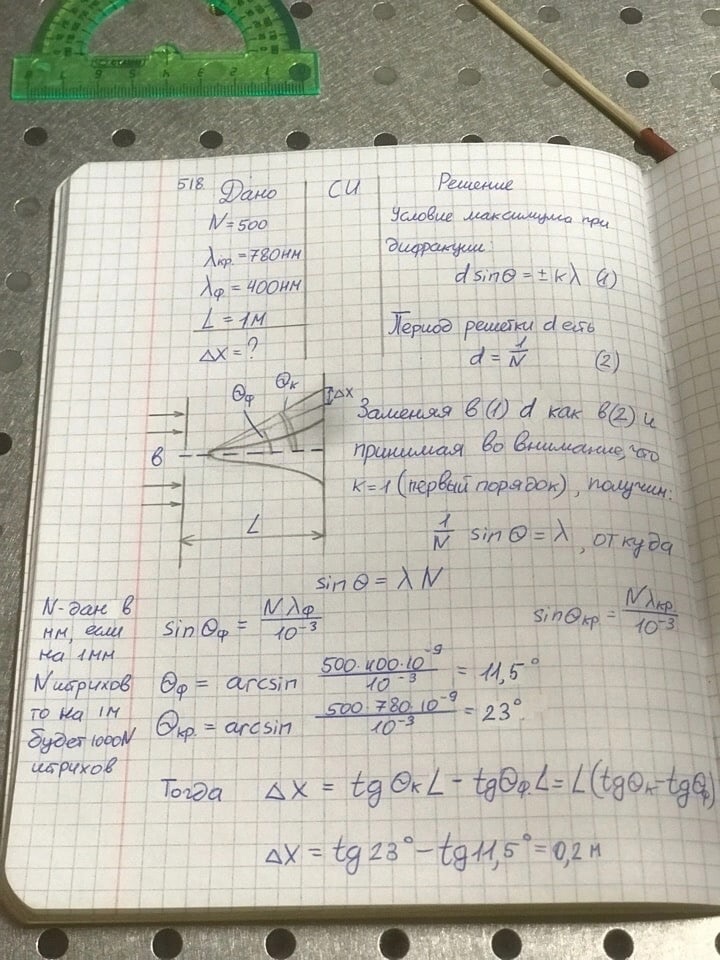 518 Дано СИ Решение
N=500
λкр.=780нм
λф=400нм
L=1м
ΔX=?
Условие максимума при
дифракции:
d sinΘ=±kλ (1)
Период решетки d есть
d=1/N (2)
Θф Θк ΔX
в
L
Заменяя в(1) d как в(2) и
принимая во внимание, что
к=1(первый порядок), получим:
1/N sinΘ=λ, откуда
sinΘ=λN
N-дан в
мм, если
на 1мм
N штрихов
то на 1м
будет 1000N
штрихов
sinΘф=Nλф/10⁻³ sinΘкр.=Nλкр./10⁻³
Θф= arcsin 500·400·10⁻⁹/10⁻³=11,5°
Θкр.=arcsin 500·780·10⁻⁹/10⁻³=23°
Тогда ΔX = tgΘкL-tgΘф.L=L(tgΘк-tgΘф)
ΔX=tg23°-tg11,5°=0,2м